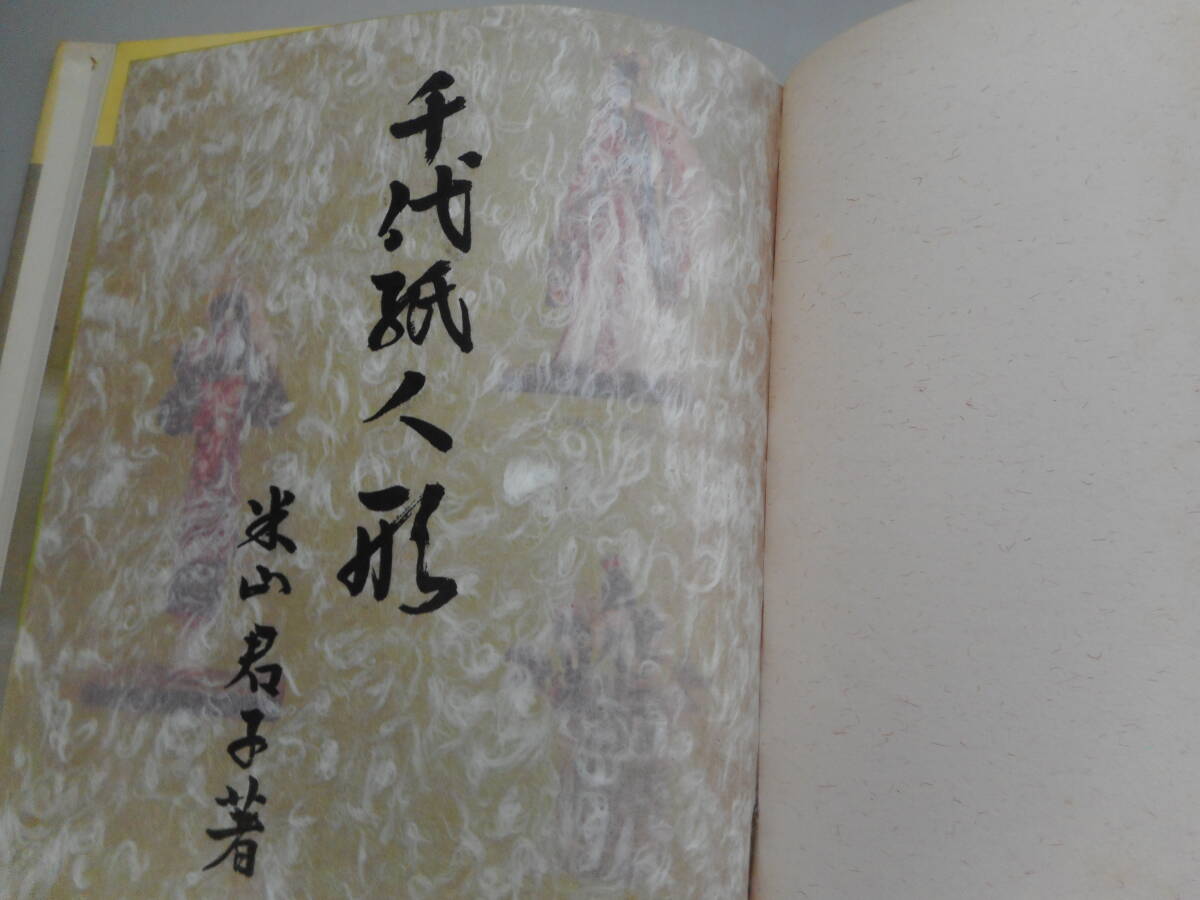 千代紙人形
米山君子著